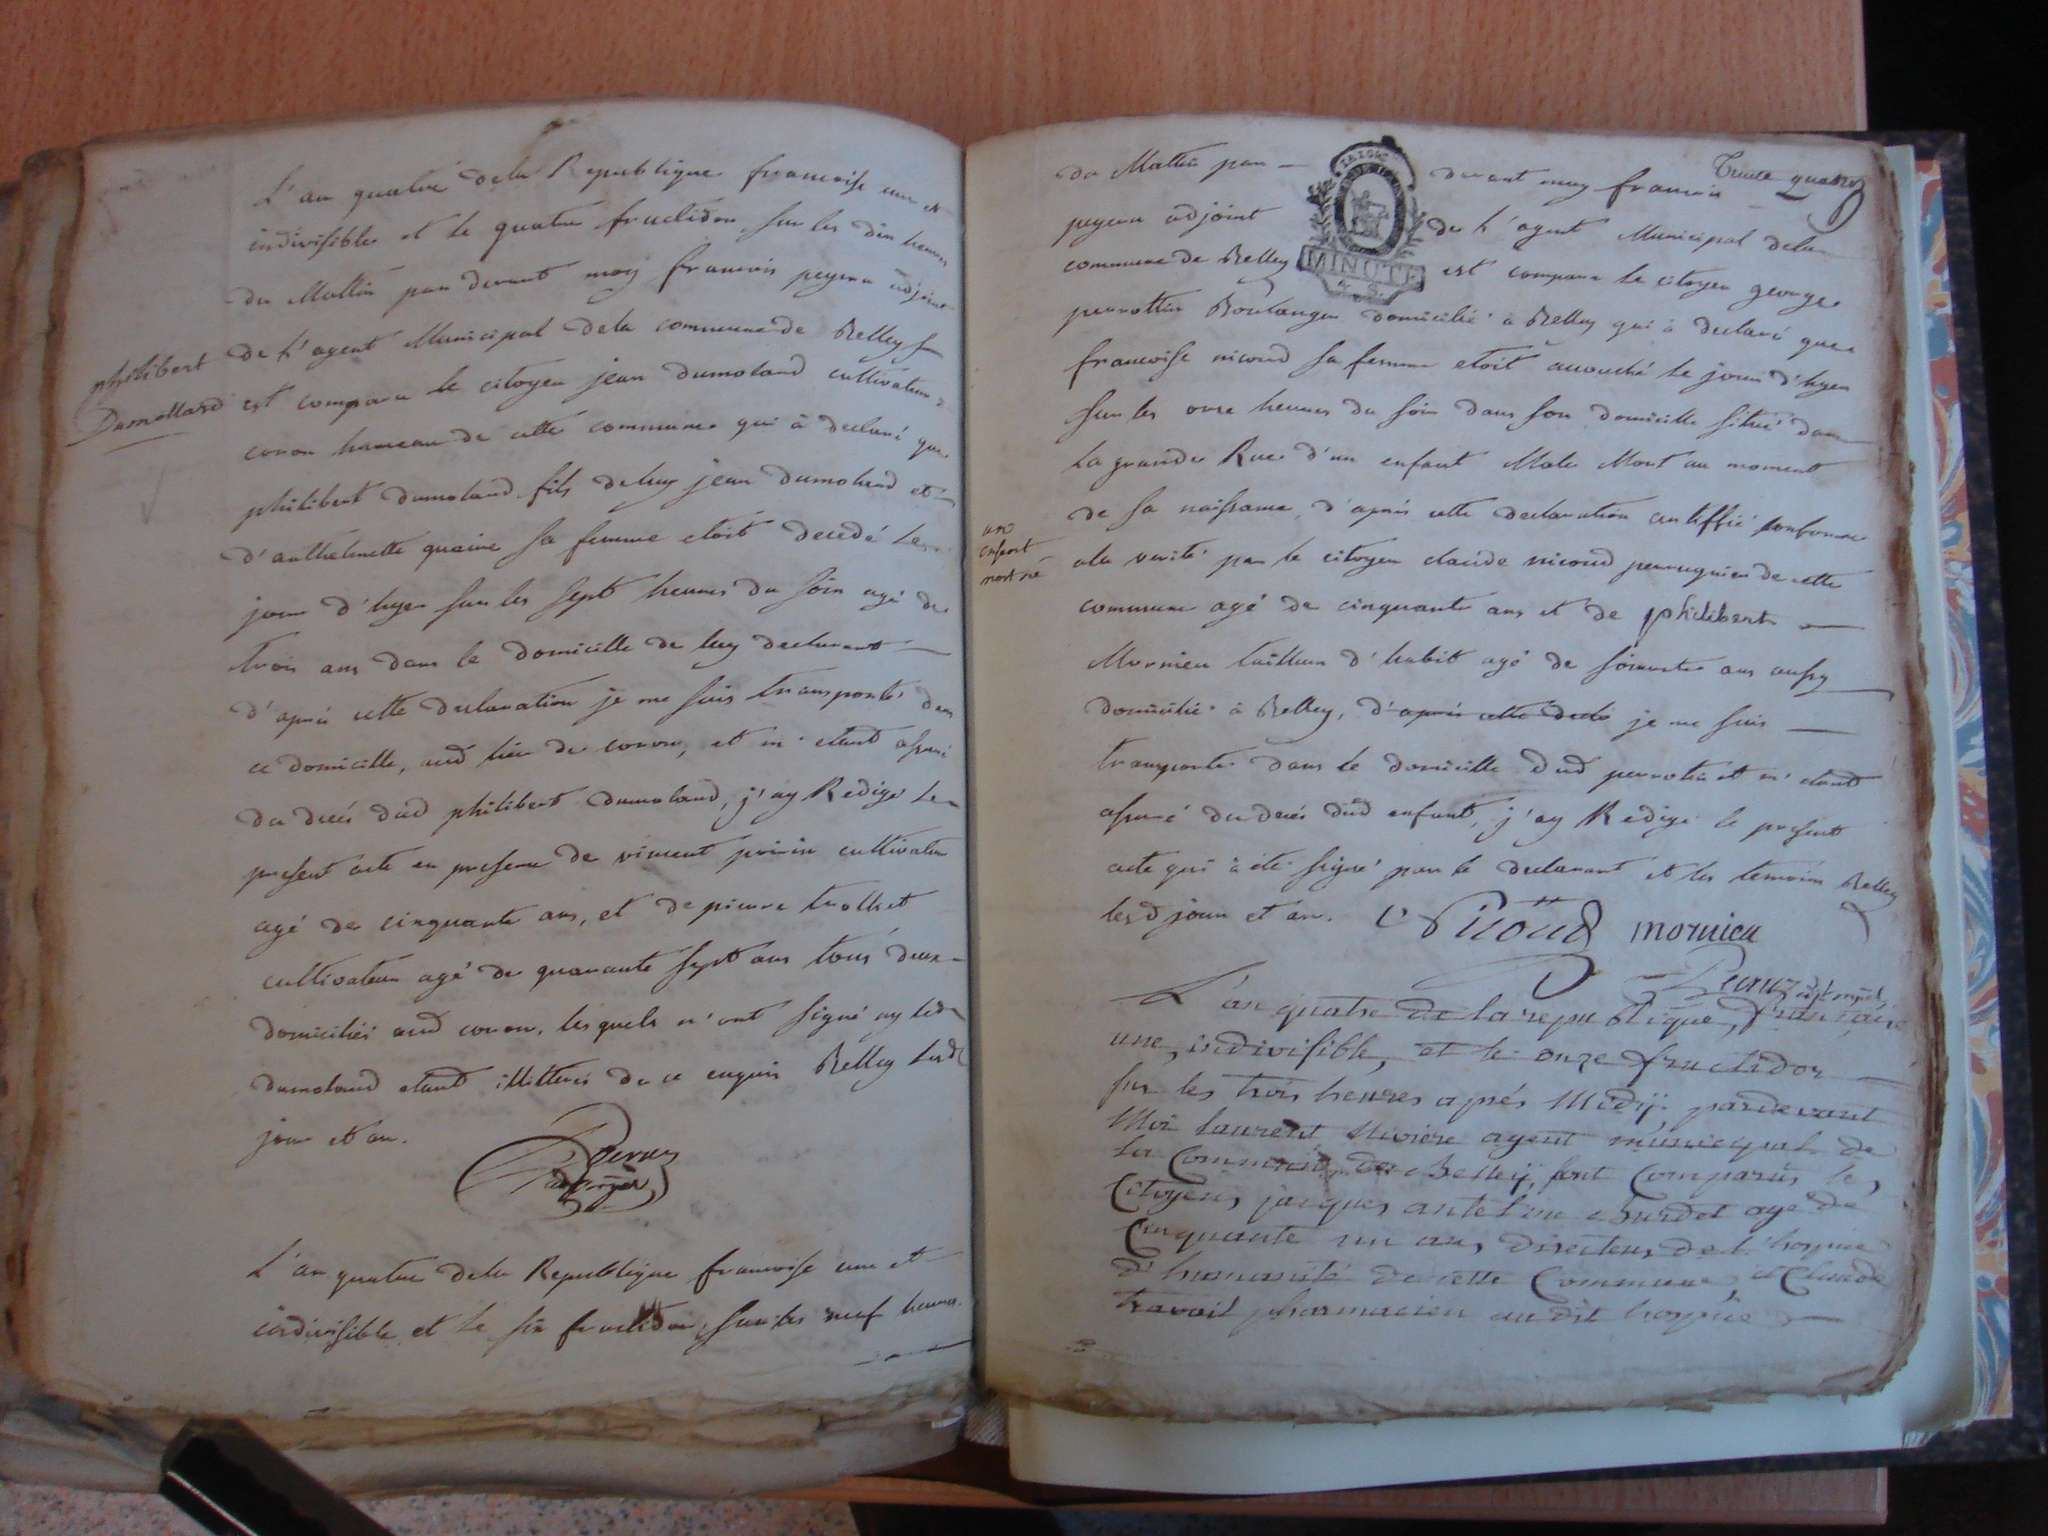 L'an quatre dela Republique francoise une et
indivisible et le quatre fructidor sur les dix heures
du Mattin par devant moy francois peyron adjoint
de l'agent Municipal dela commune de Belley
philibert
Dumollard
est comparu le citoyen jean dumoland cultivateur a
coron hameau de cette commune qui à declaré que
philibert dumoland fils de luy jean dumoland et
d'anthelmette quaine sa femme etoit decedé le
jour d'hyer sur les sept heures du soir agé de
trois ans dans le domicille de luy declarant
d'aprés cette declaration je me suis transporté dans
ce domicille, aud lieu de coron, et m'etant assuré
du deces dud philibert dumoland, j'ay Redigé le
present acte en presence de vincent cultivateur
agé de cinquante ans, et de pierre trolliet
cultivateur agé de quarante sept ans tous deux
domiciliés aud coron, lesquels n'ont signé ny led
dumoland etant illitterés de ce enquis Belley lesd
jour et an.
L'an quatre dela Republique francoise une et
indivisible et le six fructidor, sur les neuf heures
Trente quatre
du Mattin par devant moy francois
peyron adjoint de l'agent Municipal dela
MINUTE
commune de Belley est comparu le citoyen george
perrottin Boulanger domicilié à Belley qui à declaré que
francoise nicoud sa femme etoit accouché le jour d'hyer
sur les onze heures du soir dans son domicille situé dans
la grande Rue d'un enfant Male Mort au moment
de sa naissance, d'aprés cette declaration certiffié conforme
un
enfant
mort né
ala verité par le citoyen claude nicoud perruquier de cette
commune agé de cinquante ans et de philibert
Mornieu tailleur d'habit agé de soixante ans aussy
domicilié à Belley, d'aprés cette decla je me suis
transporté dans le domicille dud perrotin et m'etant
assuré du deces dud enfant, j'ay Redigé le present
acte qui à été signé par le declarant et les temoins Belley
lesd jour et an. C Nicoud mornieu
L'an quatre de la republique, francaise
une, indivisible, et le onze fructidor
sur les trois heures aprés Midy pardevant
Moi laurent Riviere agent municipal de
la Commune de Belley, sont Comparus les
Citoyens jacques antelme burdet agé de
Cinquante un ans, directeur de l'hospice
d'humanité de cette Commune, et Claude
travail pharmacien au dit hospice